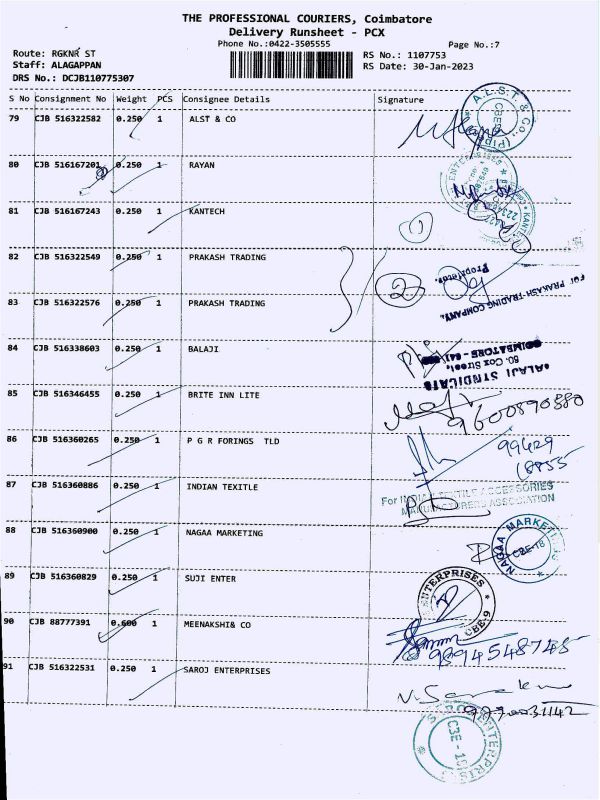 THE PROFESSIONAL COURIERS, Coimbatore
Delivery Runsheet - PCX
Phone No.:0422-3505555
Page No.:7
Route: RGKNR ST
Staff: ALAGAPPAN
DRS No.: DCJB110775307
RS No.: 1107753
RS Date: 30-Jan-2023
S No Consignment No Weight PCS Consignee Details Signature
79 CJB 516322582 0.250 1 ALST & CO
A.L.S.T. & Co.,
80 CJB 516167201 0.250 1 RAYAN
81 CJB 516167243 0.250 1 KANTECH
1
82 CJB 516322549 0.250 1 PRAKASH TRADING
2
For PRAKASH TRADING COMPANY,
Proprietor.
83 CJB 516322576 0.250 1 PRAKASH TRADING
84 CJB 516338603 0.250 1 BALAJI
BALAJI SYNDICATE
50, Cox Street,
COIMBATORE - 641
85 CJB 516346455 0.250 1 BRITE INN LITE
9600890880
86 CJB 516360265 0.250 1 P G R FORINGS TLD
99429
18855
87 CJB 516360886 0.250 1 INDIAN TEXITLE
For INDIAN TEXTILE ACCESSORIES
MANUFACTURERS ASSOCIATION
88 CJB 516360900 0.250 1 NAGAA MARKETING
NAGAA MARKETING
CBE-18
89 CJB 516360829 0.250 1 SUJI ENTER
ENTERPRISES
CBE-9
90 CJB 88777391 0.600 1 MEENAKSHI& CO
9894548745
91 CJB 516322531 0.250 1 SAROJ ENTERPRISES
SAROJ ENTERPRISES